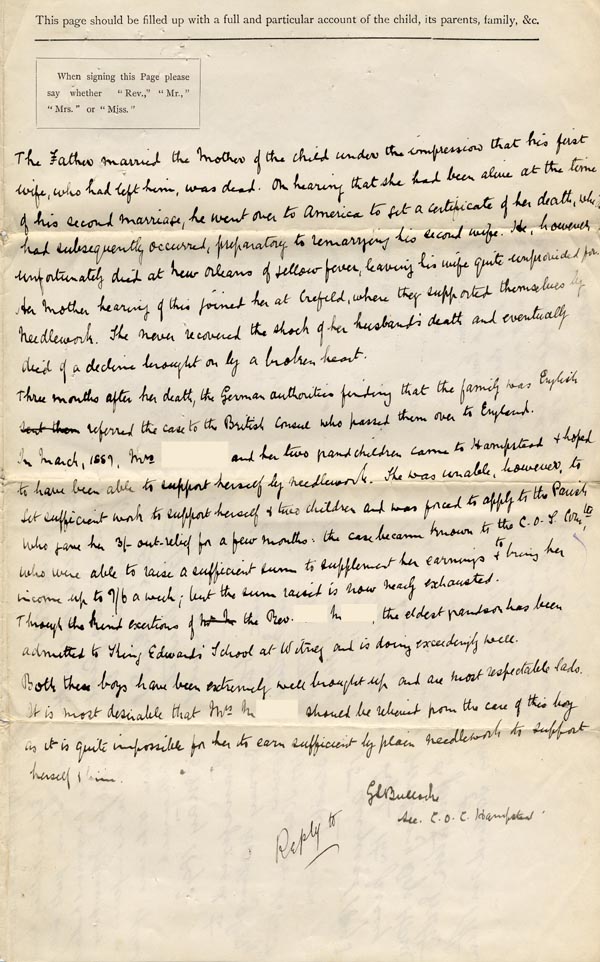 This page should be filled up with a full and particular account of the child, its parents, family, &c.
When signing this Page please
say whether "Rev.," "Mr.,"
"Mrs." or "Miss."
The Father married the Mother of the child under the impression that his first
wife, who had left him, was dead. On hearing that she had been alive at the time
of his second marriage, he went over to America to get a certificate of her death, which
had subsequently occurred, preparatory to remarrying his second wife. He, however
unfortunately died at New Orleans of yellow fever, leaving his wife quite unprovided for.
Her Mother hearing of this joined her at Crefeld, where they supported themselves by
Needlework. She never recovered the shock of her husband's death and eventually
died of a decline brought on by a broken heart.
Three months after her death, the German authorities finding that the family was English
sent them referred the case to the British Consul who passed them over to England.
In March, 1887, Mrs and her two grandchildren came to Hampstead & hoped
to have been able to support herself by needlework. She was unable, however, to
get sufficient work to support herself & two children and was forced to apply to the Parish
who gave her 3/- out-relief for a few months: the case became known to the C.O.S. Com.tee
who were able to raise a sufficient sum to supplement her earnings & to bring her
income up to 7/6 a week; but the sum raised is now nearly exhausted.
Through the kind exertions of the Rev. M , the eldest grandson has been
admitted to King Edward's School at Witney and is doing exceedingly well.
Both these boys have been extremely well brought up and are most respectable lads.
It is most desirable that Mrs M should be relieved from the care of this boy
as it is quite impossible for her to earn sufficient by plain needlework to support
herself & him.
Sec. C.O.C. Hampstead.
Reply to